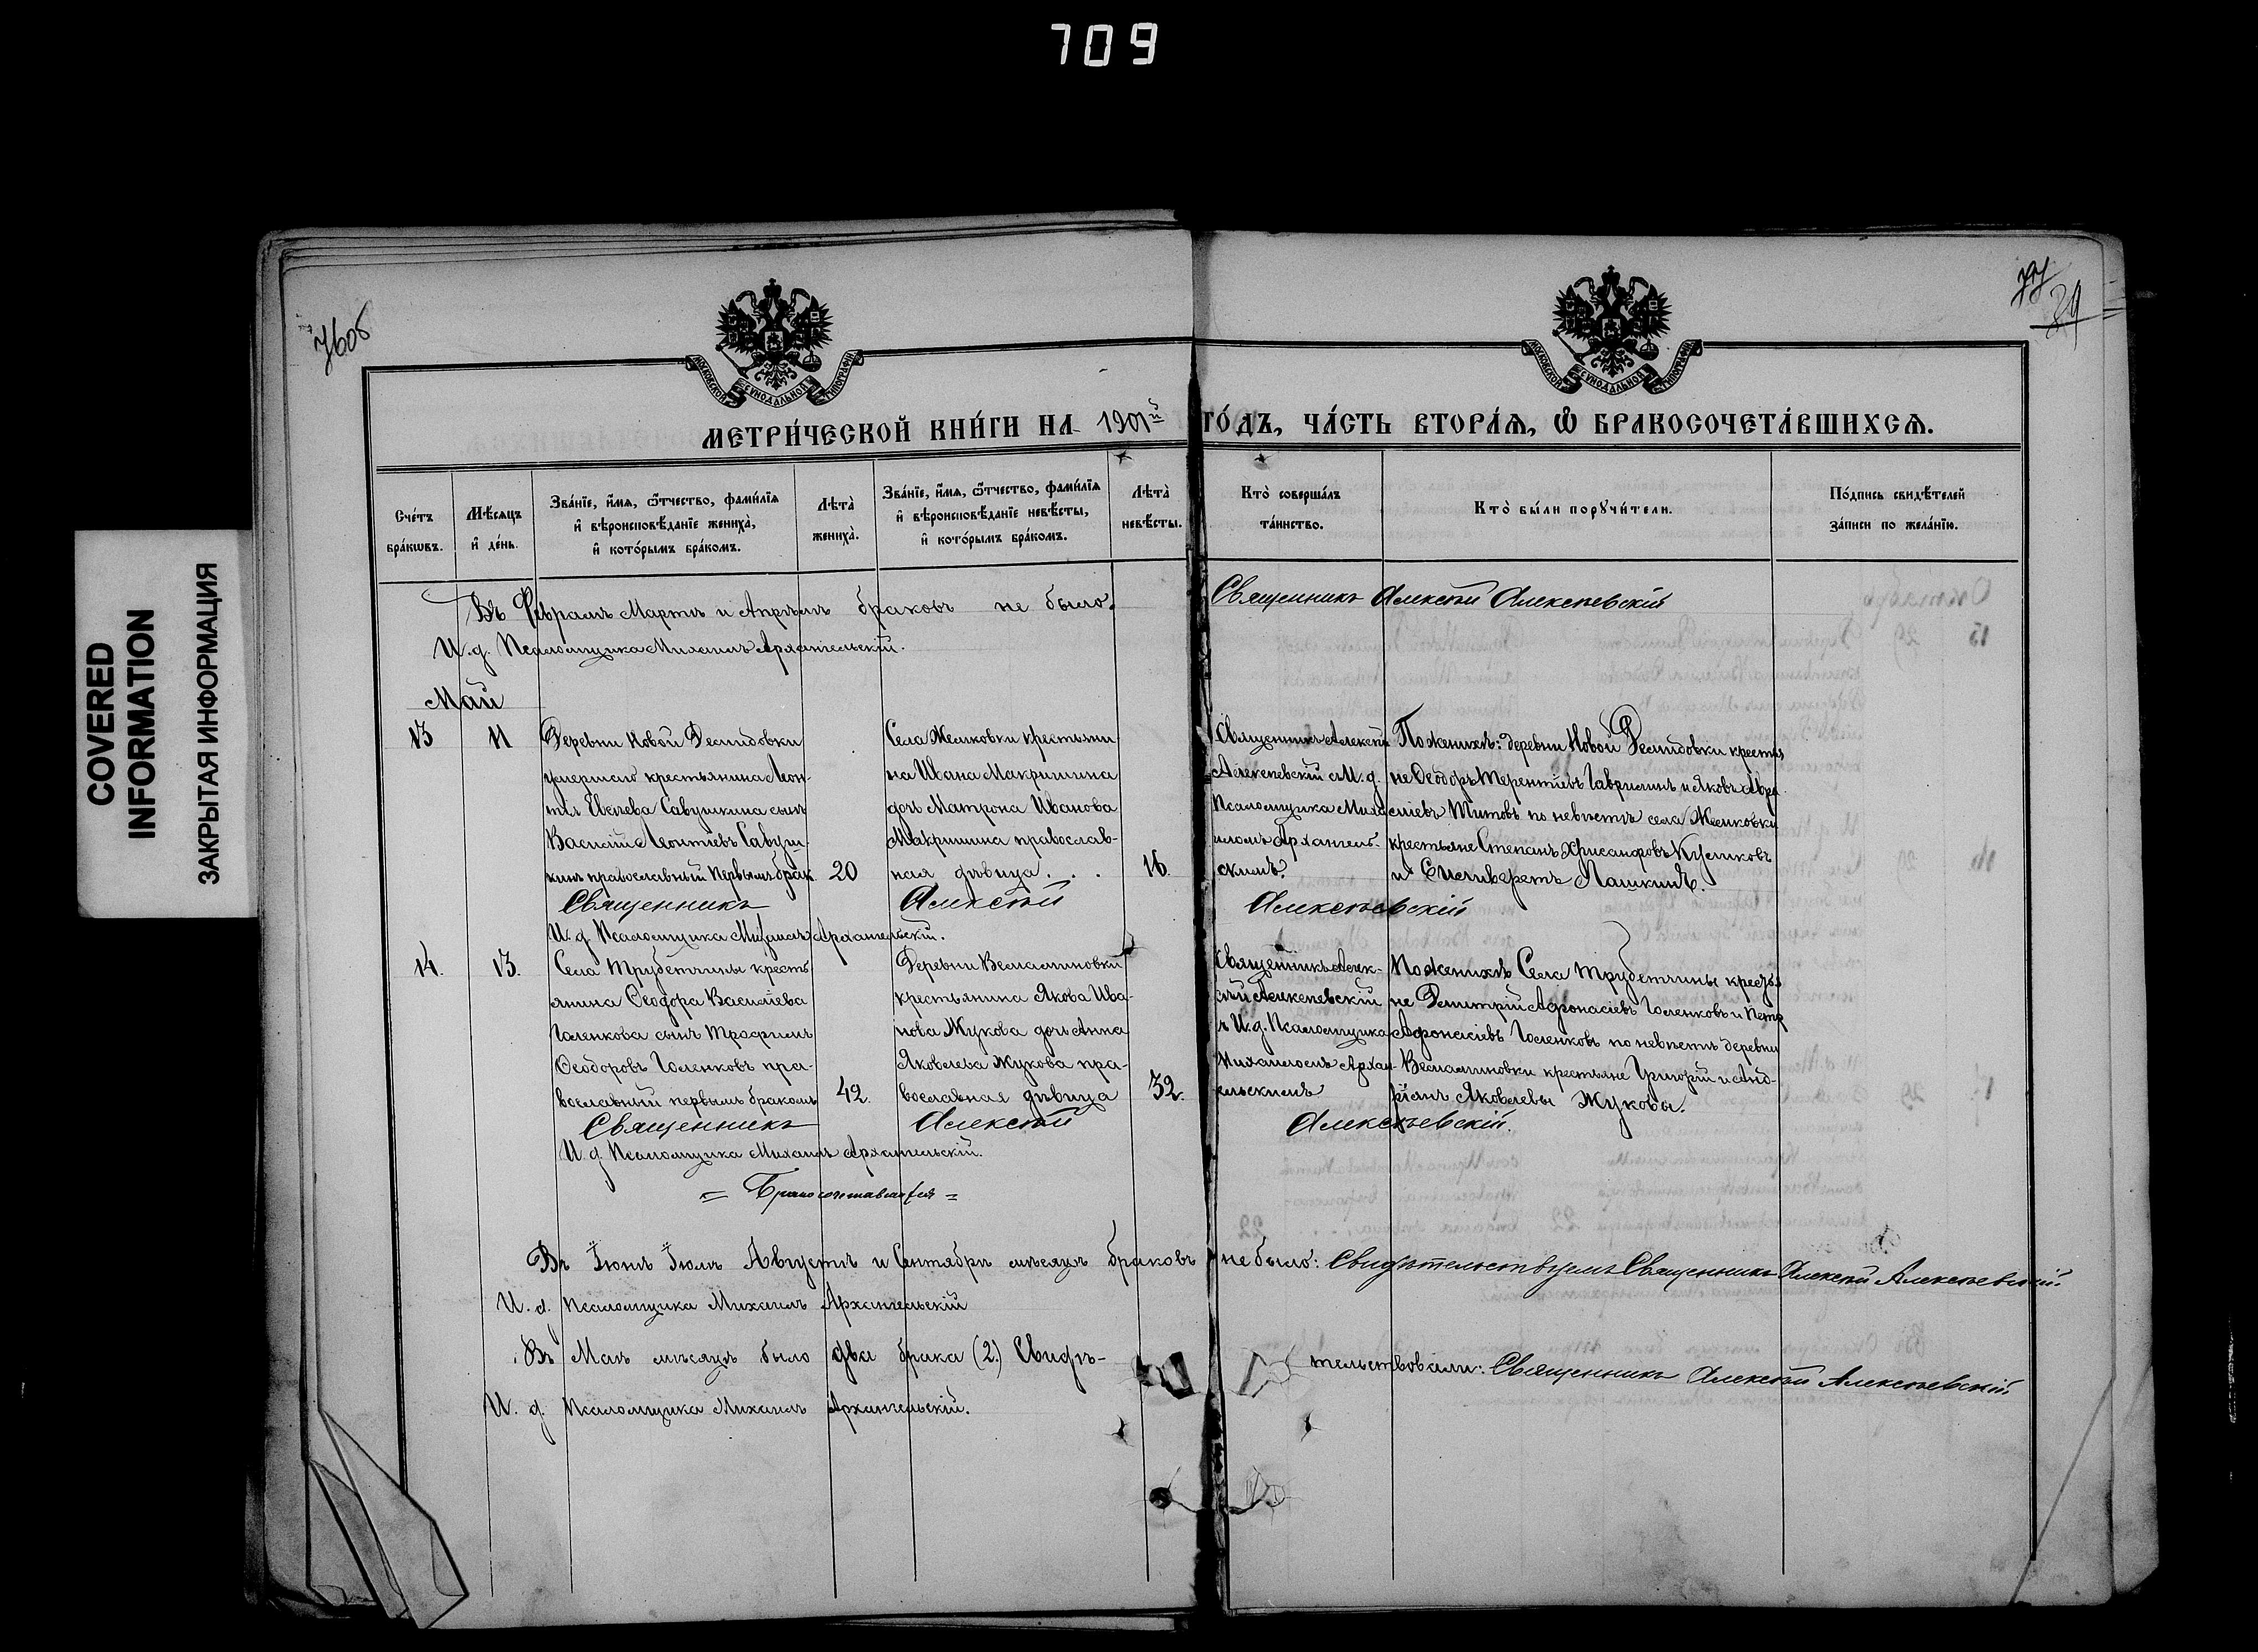 709
COVERED
INFORMATION
ЗАКРЫТАЯ ИНФОРМАЦИЯ
76об
77
МОСКОВСКОЙ СѴНОДАЛЬНОЙ ТИПОГРАФІИ
МОСКОВСКОЙ СѴНОДАЛЬНОЙ ТИПОГРАФІИ
МЕТРИ́ЧЕСКОЙ КНИ́ГИ НА 1901й ГО́ДЪ, ЧА́СТЬ ВТОРА́Ѧ, Ѽ БРАКОСОЧЕТА́ВШИХСѦ.
Сче́тъ
бра́кѡвъ.
Мѣ́сяцъ
и҆ де́нь.
Зва́нїе, и҆́мѧ, ѻ҆́тчество, фами́лїѧ
и҆ вѣроисповѣ́данїе жениха̀,
и҆ кото́рымъ бра́комъ.
Лѣта̀
жениха̀.
Зва́нїе, и҆́мѧ, ѻ҆́тчество, фами́лїѧ
и҆ вѣроисповѣ́данїе невѣ́сты,
и҆ кото́рымъ бра́комъ.
Лѣта̀
невѣ́сты.
Кто̀ соверша́лъ
та́инство.
Кто̀ бы́ли порꙋчи́тели.
По́дпись свидѣ́телей
за́писи по жела́нїю.
Въ Февралѣ Мартѣ и Апрѣлѣ браковъ не было. Священникъ Алексѣй Алексѣевскій
И.д. Псаломщика Михаилъ Архангельскій.
Май
13
11
Деревни Новой Демидовки
умершаго крестьянина Леон-
тія Савушкина сынъ
Василій Леонтіевъ Савуш-
кинъ православный первымъ брак
20
Села Желиковки крестьяни-
на Ивана Макришина
дочь Матрона Иванова
Макришина православ-
ная дѣвица . . .
16.
Священникъ Алексѣй
Алексѣевскій съ И.д.
Псаломщика Миха
иломъ Архангель-
скимъ.
По женихѣ: деревни Новой Демидовки крестья
не Ѳеодоръ Терентіевъ Гаврилинъ и Яковъ Авра
міевъ Титовъ по невѣстѣ села Желиковки
крестьяне Степанъ Хрисанфовъ Куликовъ
и Селиверстъ Лашкинъ.
Священникъ Алексѣй Алексѣевскій
И.д. Псаломщика Михаилъ Архангельскій.
14.
13.
Села Трубетчины кресть
янина Ѳеодора Василіева
Голенкова сынъ Трофимъ
Ѳеодоровъ Голенковъ пра-
вославный первымъ бракомъ
42.
Деревни Вельаминовки
крестьянина Якова Ива-
нова Жукова дочь Анна
Яковлева Жукова пра-
вославная дѣвица
32.
Священникъ Алек-
сѣй Алексѣевскій
съ И.д. Псаломщика
Михаиломъ Архан-
гельскимъ
По женихѣ Села Трубетчины крестья
не Димитрій Афонасіевъ Голенковъ и Петръ
Афонасіевъ Голенковъ по невѣстѣ деревни
Вельаминовки крестьяне Григорій и Анд-
ріанъ Яковлевы Жуковы.
Священникъ Алексѣй Алексѣевскій.
И.д. Псаломщика Михаилъ Архангельскій.
Въ Іюнѣ Іюлѣ Августѣ и Сентябрѣ мѣсяцѣ браковъ не было: Свидѣтельствуемъ Священникъ Алексѣй Алексѣевскій.
И.д. Псаломщика Михаилъ Архангельскій
Въ Маѣ мѣсяцѣ было два брака (2.) Свидѣ-тельствовали: Священникъ Алексѣй Алексѣевскій
И.д. Псаломщика Михаилъ Архангельскій.